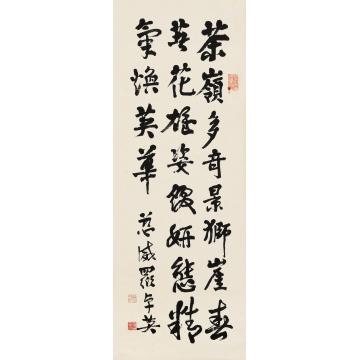 茶嶺多奇景獅崖春
花雄姿妍態精
氣煥英華 慈威羅卓英